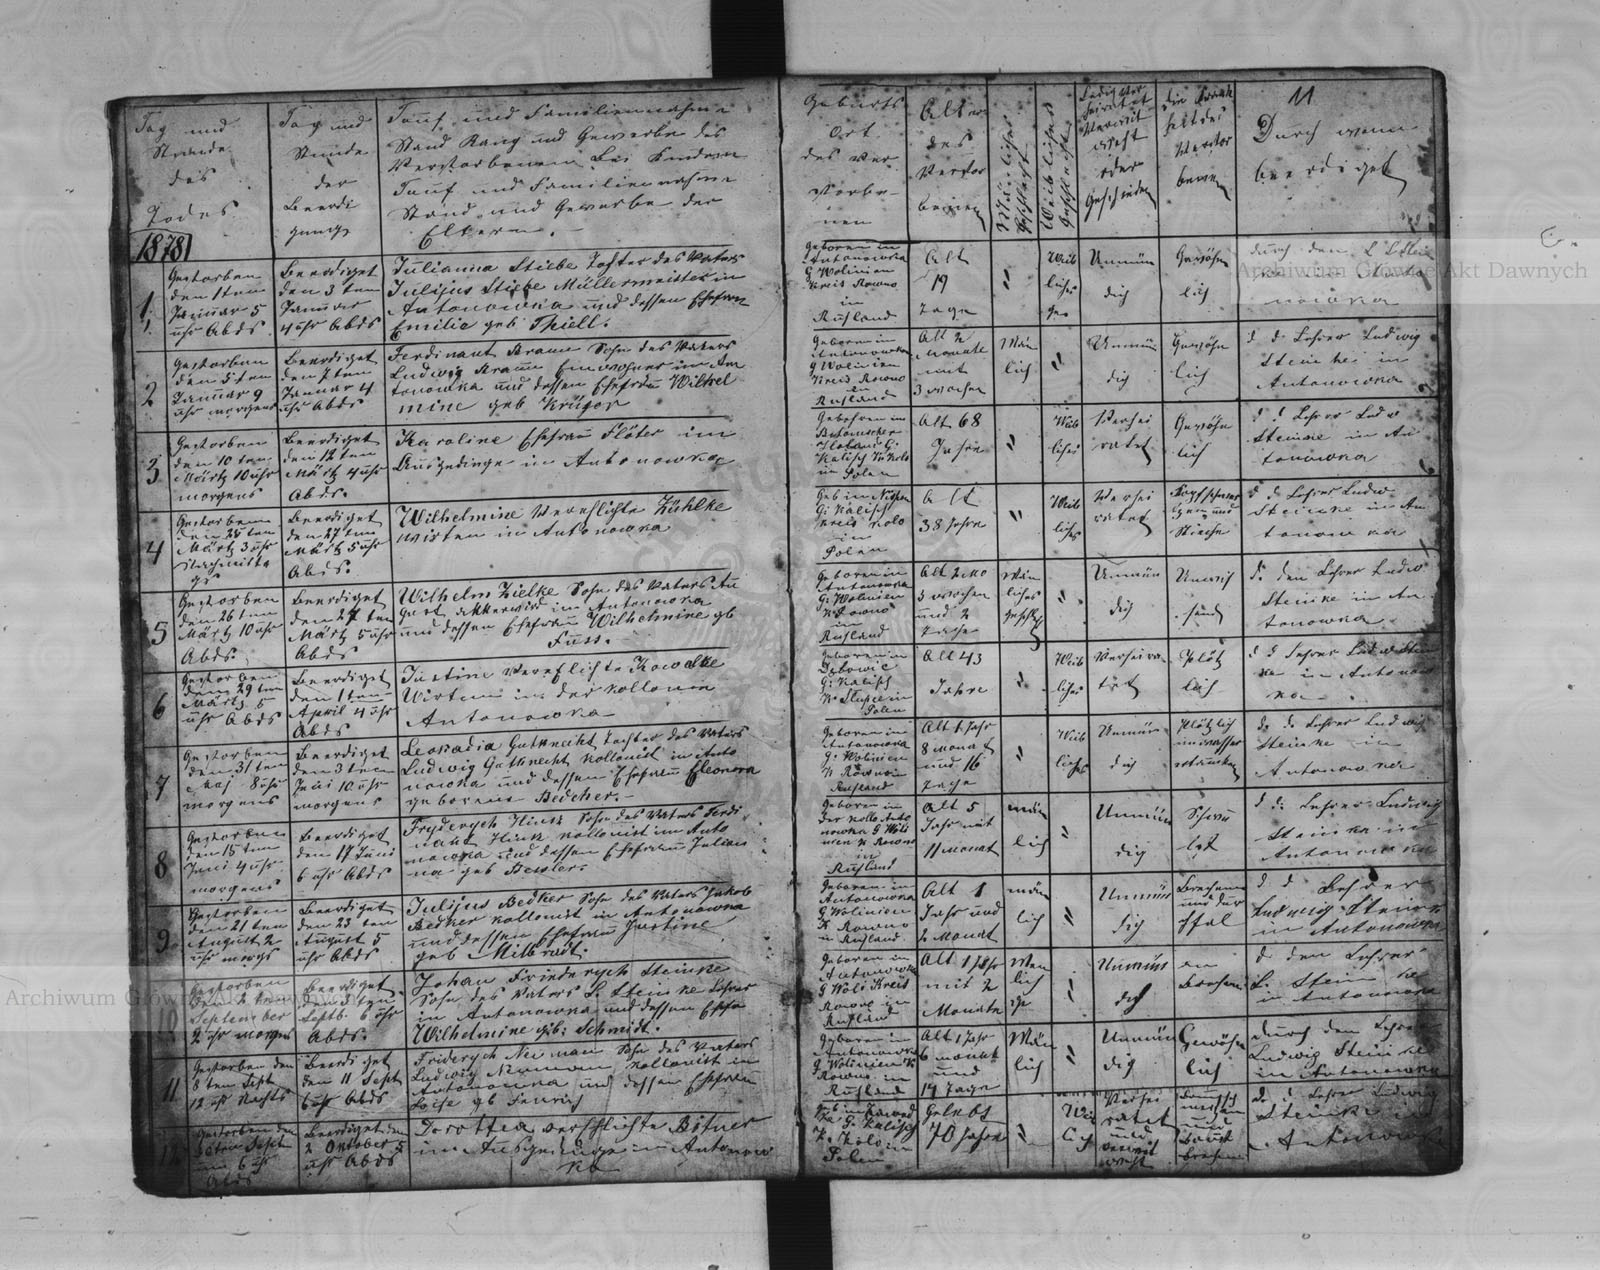 Tag und
Stunde
des
Todes
Tag und
Stunde
der
Beerdi
gung
Tauf und Familiennahme
Stand Rang und Gewerbe des
Verstorbenen bei Kindern
Tauf und Familiennahme
Stand und Gewerbe der
Eltern.
Geburts
Ort
des Ver
storbe
nen
Alter
des
Verstor
benen
Männliches
Geschlecht
Weibliches
Geschlecht
Ledig Ver
heiratet
Verwit
weht
oder
Geschieden
Die Krank
heit des
Verstor
benen
11
Durch wenn
beerdiget
1878
1
Gestorben
den 1 ten
Januar 5
uhr Abds
Beerdiget
den 3 ten
Januar
4 uhr Abds
Julianna Stiebe Tochter des Vaters
Julijus Stiebe Müllermeister in
Antonowka und dessen Ehefrau
Emilie geb Thiell.
Geboren in
Antonowka
G Wolinien
Kreis Rowno
in
Rußland
Alt
19
Tage
"
Weib
liches
Unmün
dig
Gewöhn
lich
durch den
nowka
2
Gestorben
den 5 ten
Januar 9
uhr morgens
Beerdiget
den 7 ten
Januar 4
uhr Abds
Ferdinant Kraun Sohn des Vaters
Ludwig Kraun Einwohner in An
tonowka und dessen Ehefrau Wilhel
mine geb Krüger
Geboren in
Antonowka
G Wolinien
Kreis Rowno
in
Rußland
Alt 2
Monate
mit
3 wochen
Män
lich
"
Unmün
dig
Gewöhn
lich
d d Lehrer Ludwig
Steinke in
Antonowka
3
Gestorben
den 10 ten
Märtz 10 uhr
morgens
Beerdiget
den 12 ten
Märtz 4 uhr
Abds.
Karoline Ehefrau Flöter im
Ausgedinge in Antonowka
Gebohren im
G:
Kalisch K Kolo
in Polen
Alt 68
Jahre
"
Weib
liches
Verhei
ratet
Gewöhn
lich
d d Lehrer Ludw
Steinke in An
tonowka
4
Gestorben
den 25 ten
Märtz 3 uhr
Nachmitta
gs
Beerdiget
den 27 ten
Märtz 5 uhr
Abds.
Wilhelmine Vereflichte Zühlke
Wirten in Antonowka
Geb in
G: Kalisch
Kreis Kolo
in
Polen
Alt
38 Jahre
"
Weib
liches
Verhei
ratet
d d Lehrer Ludw
Steinke in An
tonowka
5
Gestorben
den 26 ten
Märtz 10 uhr
Abds.
Beerdiget
den 27 ten
Märtz 5 uhr
Abds
Wilhelm Zielke Sohn des Vaters Au
gust Akkerwird in Antonowka
und dessen Ehefrau Wilhelmine gb
Fuss.
Geboren in
Antonowka
G: Wolinien
K Rowno
in
Rußland
Alt 2 Mo
3 wochen
und 2
Tage
Män
liches
Geschlecht
"
Unmün
dig
d: den Lehrer Ludw
Steinke in An
tonowka
6
Gestorben
den 29 ten
Märtz 5
uhr Abds
Beerdiget
den 1 ten
April 4 uhr
Abds
Justine Vereflichte Kowalke
Wirten in der Kollonie
Antonowka
Geboren in
G: Kalisch
K: Slupce in
Polen
Alt 43
Jahre
"
Weib
liches
Verheira
tet
Plötz
lich
d d Lehrer Ludw Stein
ke in Antonow
ka
7
Gestorben
den 31 ten
Maj 8 uhr
morgens
Beerdiget
den 3 ten
Juni 10 uhr
morgens
Leokadia Gutknecht Tochter des Vaters
Ludwig Gutknecht Kollonist in Anto
nowka und dessen Ehefrau Eleonora
geborene Bedcher.
Geboren in
Antonowka
G: Wolinien
K Rowno in
Rußland
Alt 1 Jahr
8 Monat
und 16
Tage
"
Weib
liches
Unmün
dig
Plötzlich
im wasser
ertrunken
d: d: Lehrer Ludwig
Steinke in
Antonowka
8
Gestorben
den 15 ten
Juni 4 uhr
morgens
Beerdiget
den 17 Juni
6 uhr Abds
Frydrych Hink Sohn des Vaters Ferdi
nant Hink Kollonist in Anto
nowka und dessen Ehefrau Julian
na geb Bessler.
Geboren in
der Kollo Anto
nowka G Woli
nien K Rowno
in
Rußland
Alt 5
Jahr mit
11 Monat
män
lich
"
Unmün
dig
d: d: Lehrer Ludwich
Steinke in
Antonowka
9
Gestorben
den 21 ten
August 2
uhr morgs
Beerdiget
den 23 ten
August 5
uhr Abds
Julijus Bedker Sohn des Vaters Jakob
Bedker Kollonist in Antonowka
und dessen Ehefrau Justine
geb Milbradt.
Geboren in
Antonowka
G Wolinien
K Rowno
in Rußland
Alt 1
Jahr und
2 Monat
män
lich
"
Unmün
dig
d d Lehrer
Ludwig Steinke
in Antonowka
10
Gestorben
den 2 ten
September
2 uhr morgens
Beerdiget
den 3 ten
Septb. 6 uhr
Abds.
Johan Friederych Steinke
Sohn des Vaters L. Steinke Lehrer
in Antonowka und dessen Ehefra
Wilhelmine geb: Schmidt.
Geboren in
Antonowka
G Woli Kreis
Rowno in
Rußland
Alt 1 Jahr
mit 2
Monate
Men
lich
"
Unmün
dig
an
Brechen
d den Lehrer
L. Steinke
in Antonowka
11
Gestorben den
8 ten Sept
12 uhr Nachts
Beerdiget
den 11 Sept
6 uhr Abds
Friderych Neiman Sohn des Vaters
Ludwig Neiman Kollonist in
Antonowka und dessen Ehefrau
Loise gb Fenrich
Geboren in
Antonowka
G Wolinien K
Rowno in
Rußland
Alt 1 Jahr
6 monat
und
14 Tage
Män
lich
"
Unmün
dig
Gewöhn
lich
durch den Lehrer
Ludwig Steinke
in Antonowka
12
Gestorben den
Sept
um 6 uhr
Abds
Beerdiget den
2 Oktober 5
uhr Abds
Dorottea verehlichte Bötner
im Ausgedinge in Antonow
ka
G: Kalisch
K. Kolo in
Polen
Gelebt
70 Jahre
"
Weib
lich
Verhei
ratet
und
verwit
weht
d: d Lehrer Ludwig
Steinke in
Antonowka
Archiwum Główne Akt Dawnych
Archiwum Główne Akt Dawnych